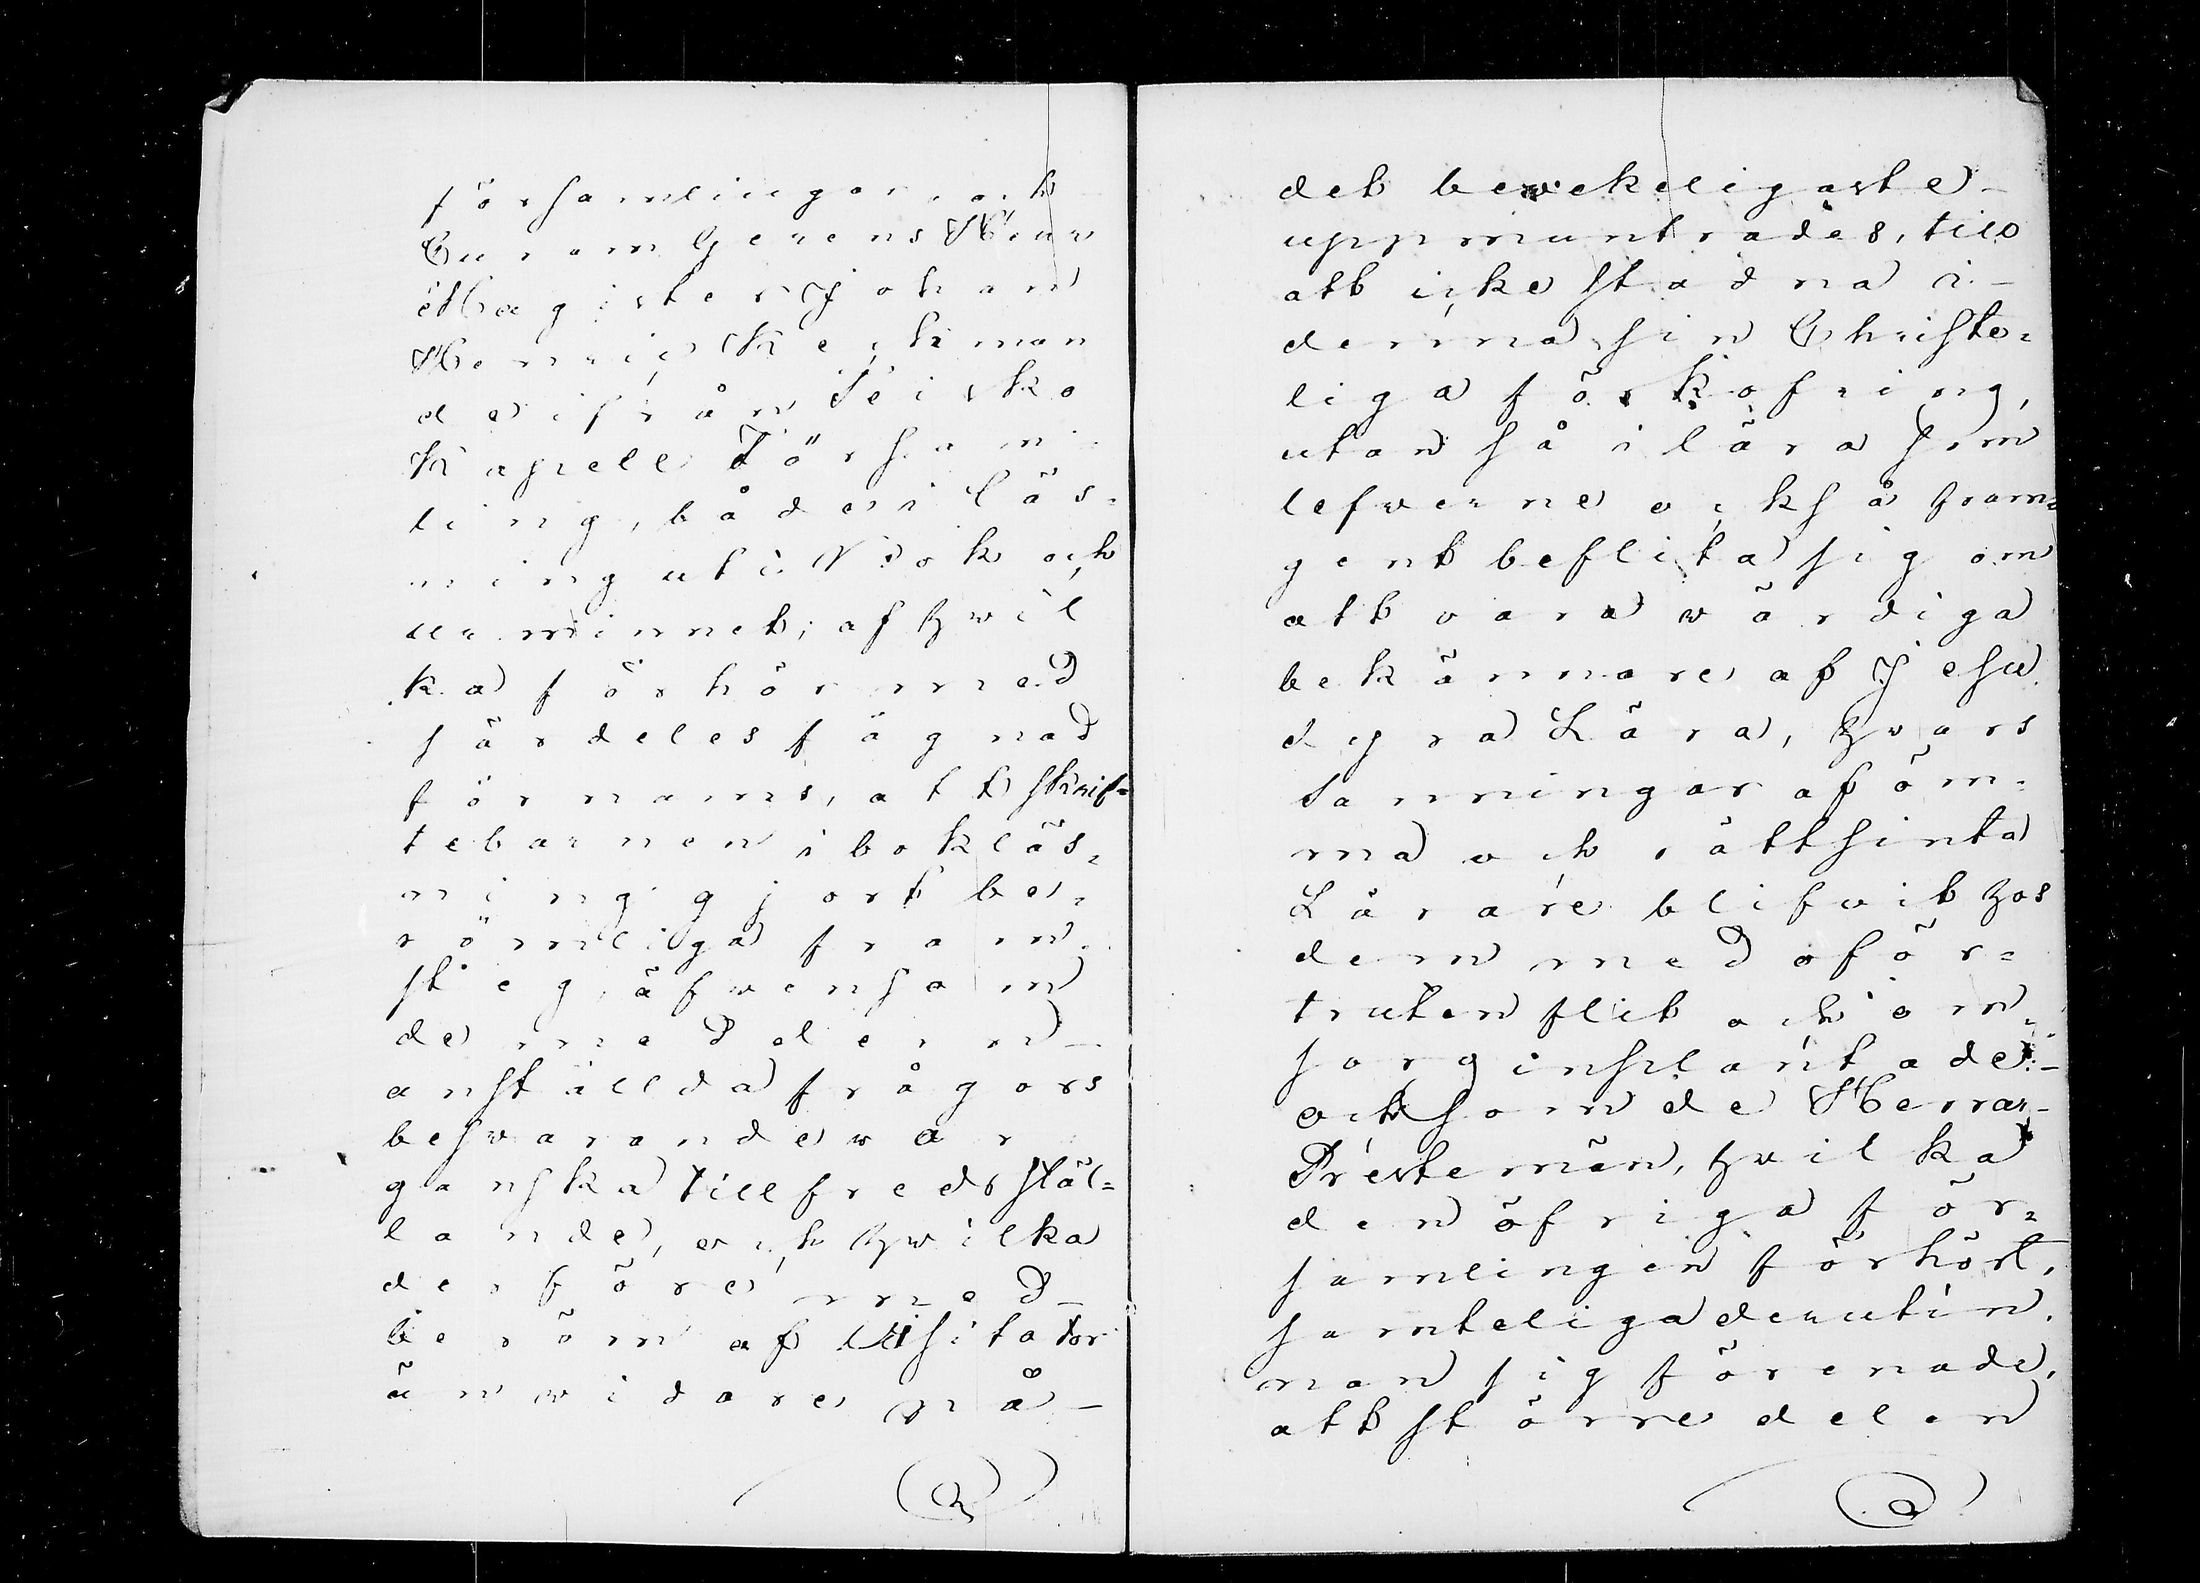 församlingar, och
Curam Gerens Herr
Magister Johan
Henric Keckman
deifrån Teisko
Kapell Församl-
ling, både i läs-
ning uti Bok och
ur minnet; af hvil
ka förhör med
särdeles fägnad
förnams, att skrif-
tebarnen i bokläs-
ning gjort be-
römliga fram-
steg, äfvensom
de med dem
anställda frågors
besvarande var
ganska tillfredsstäl-
lande, och hvilka
derföre med
beröm af Visitator
än widare på
det bevekeligaste
uppmuntrades, till
att icke stadna i
denna sin Christe-
liga förkofring,
utan så i lära som
lefverne ocks å fram-
gent beflita sig om
att vara värdiga
bekännare af Jesu
dyra Lära, hvars
Sanningar af öm-
ma och rättsinta
Lärare blifvit hos
dem med oför-
truten flit och om-
sorg inplantade
och som de Herrar
Prestemän, hvilka
den öfriga för-
samlingen förhört,
samteliga derutin-
nan sig förenade,
att större delen